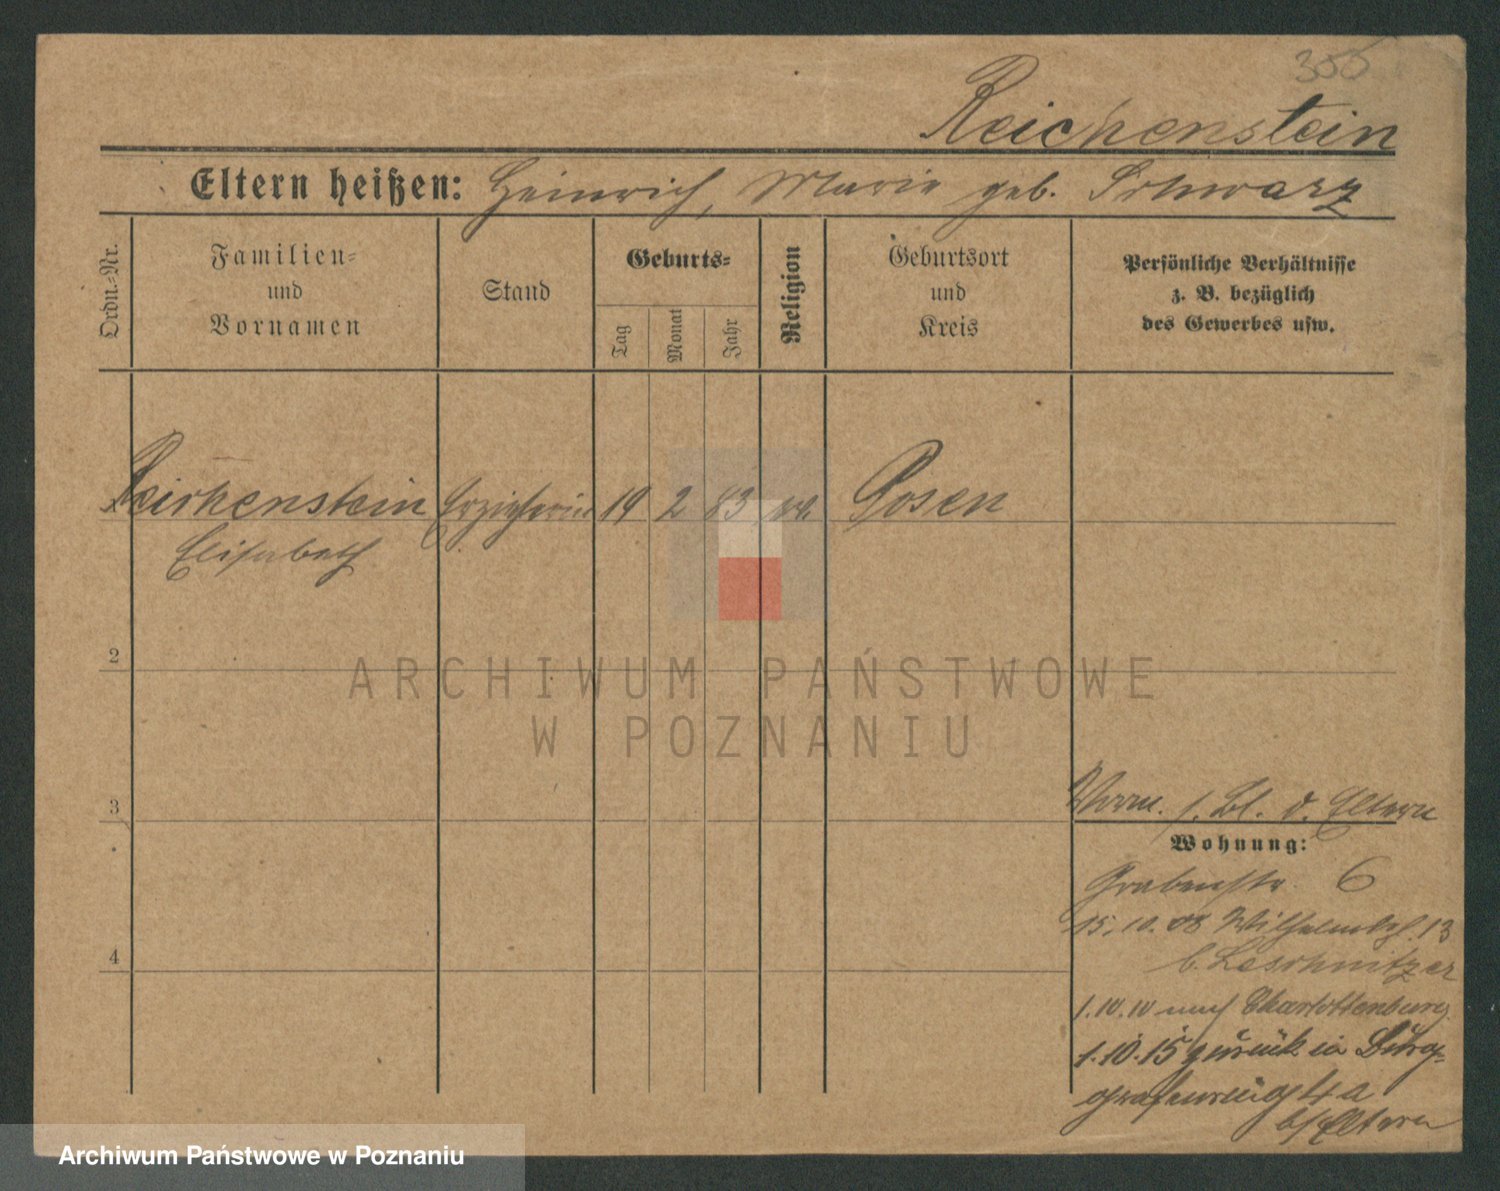 356
Reichenstein
Eltern heißen: Heinrich, Marie geb. Schwarz
Ordn.-Nr.
Familien-
und
Vornamen
Stand
Geburts-
Tag
Monat
Jahr
Religion
Geburtsort
und
Kreis
Persönliche Verhältnisse
z. B. bezüglich
des Gewerbes usw.
Reichenstein Erzieherin 19 2 83 Posen
Elisabeth
2
3
4
Vorm. s. Bl. d. Eltern
Wohnung:
Grabenstr. 6
15.10.08 Wilhelmpl. 13
b. Leschnitzer
1.10.10 nach Charlottenburg
1.10.15 zurück in Burg-
grafenring 4a
b/Eltern
ARCHIWUM PAŃSTWOWE
W POZNANIU
Archiwum Państwowe w Poznaniu